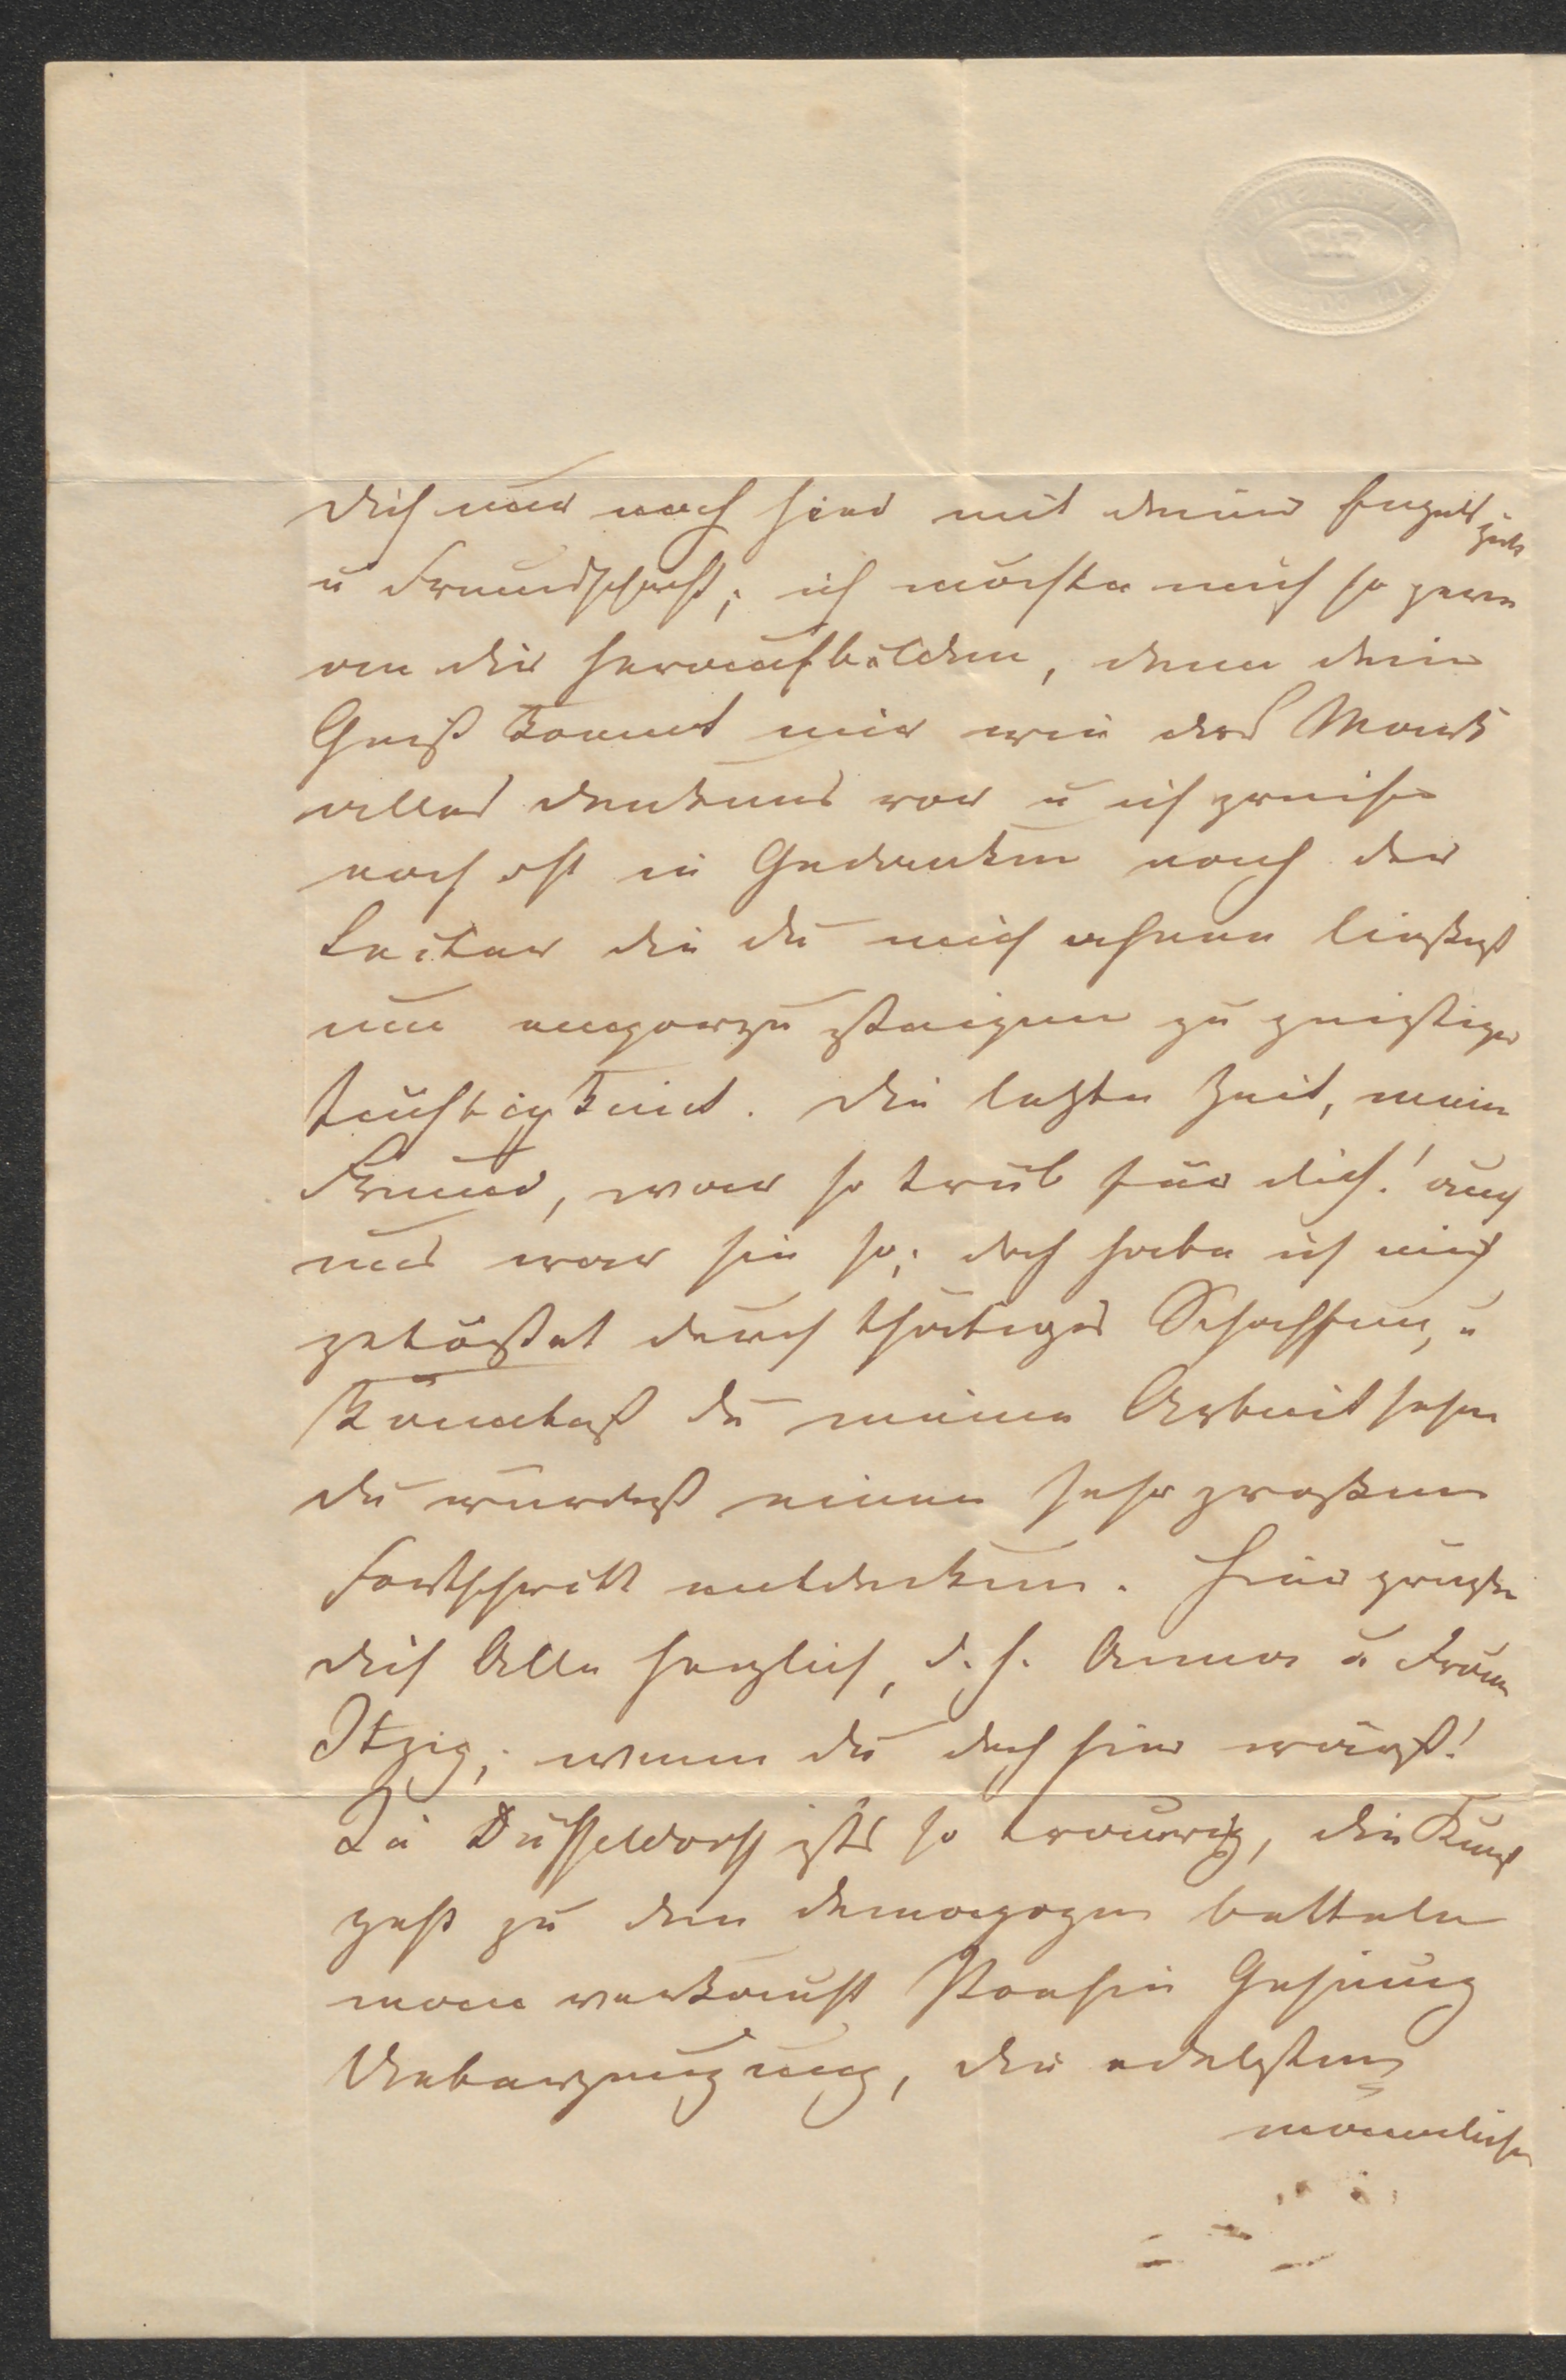 dich nur noch hier mit deiner
u Freundschaft; ich möchte mich so gern
an dir heraufbilden, denn dein
Geist kommt mir wie das Mark
alles Denkens vor u ich greife
noch oft in Gedanken nach der
Leiter die du mich ahnen ließest
um emporzusteigen zu geistiger
Tüchtigkeit. Die letzte Zeit, mein
Freund, war so trüb für dich! auch
uns war sie so; doch habe ich mich
getröstet durch thätiges Schaffen, u
könntest du meine Arbeit sehen
du würdest einen sehr großen
Fortschritt entdecken. Hier grüßen
dich Alle herzlich, d. h. Anna u Frau
Itzig; wenn du doch hier wärst!
In Düsseldorf ists so traurig, die Kunst
geht zu den Demagogen betteln
man verkauft Poesie Gesinung
Ueberzeugung, die edelsten
männlichen